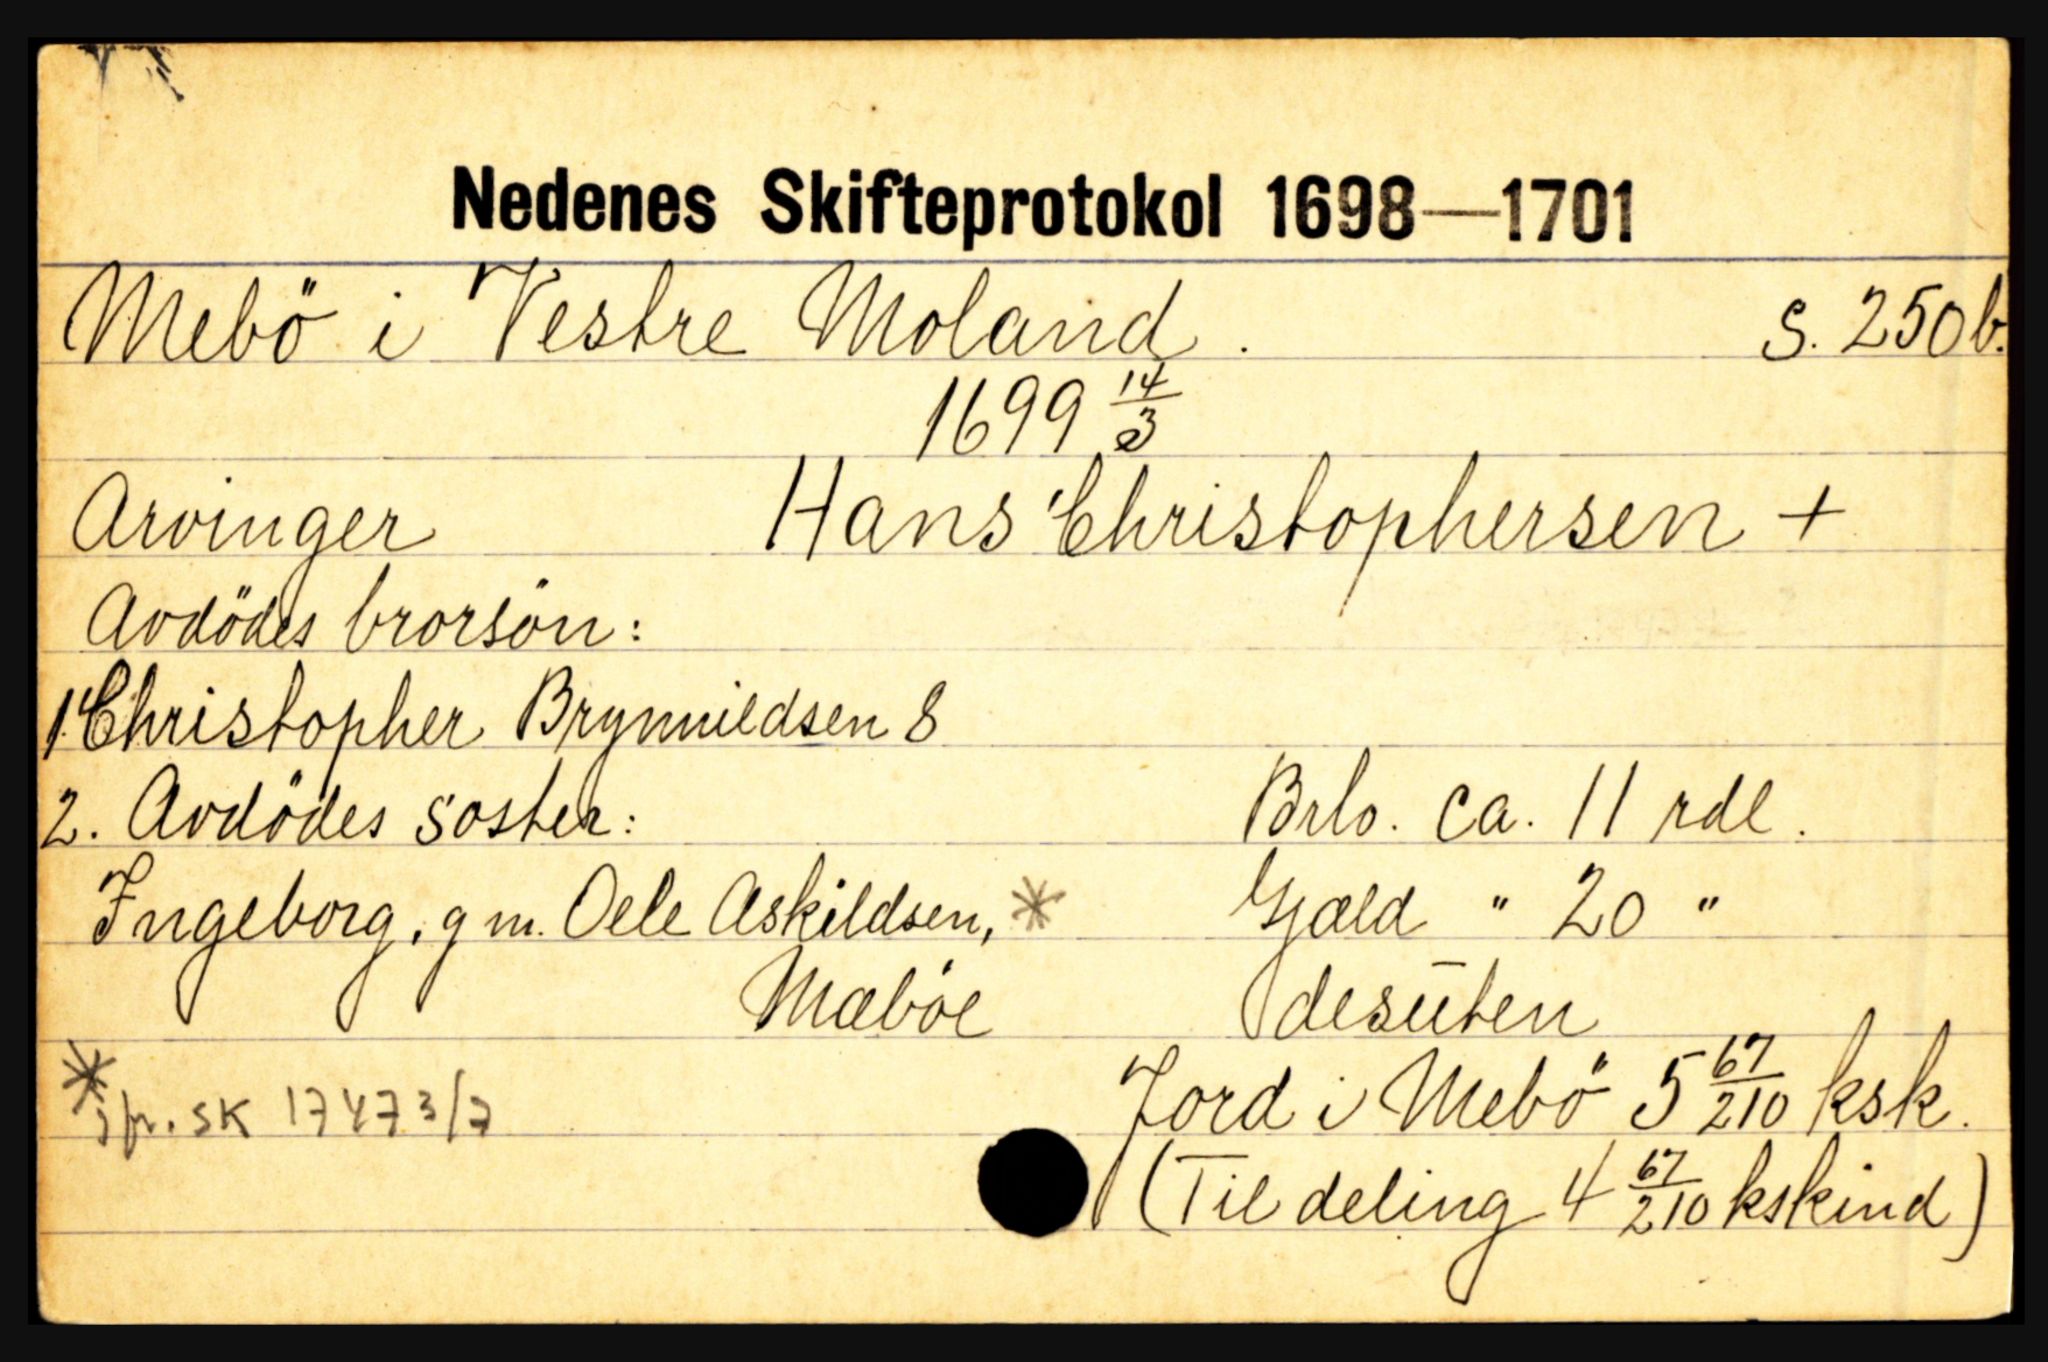 Nedenes Skifteprotokol 1698—1701
Mebö i Vestre Moland. S. 250b.
1699 14/3
Arvinger Hans Christophersen +
Avdödes brorsön:
1. Christopher Brynnildsen 8
2. Avdödes soster: Brlo. ca. 11 rdl.
Ingeborg, g m. Oele Askildsen, * Gjæld " 20 "
Mæbøe desūten
* jfr. SK 1747 3/7 Jord i Mebö 5 67/210 ksk.
(Til deling 4 67/210 kskind)